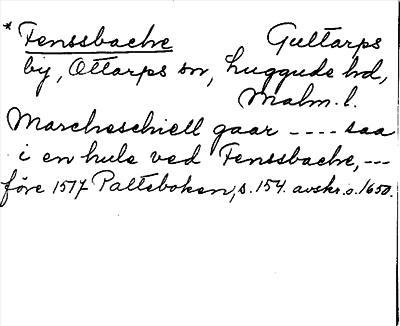 * Fenssbache Gultarps
by, Ottarps sn, Luggude hd,
Malm. l.
Marcheschiell gaar ---- saa
i en hule ved Fenssbache, ---
före 1517 Palteboken, s. 154. avskr. o. 1650.